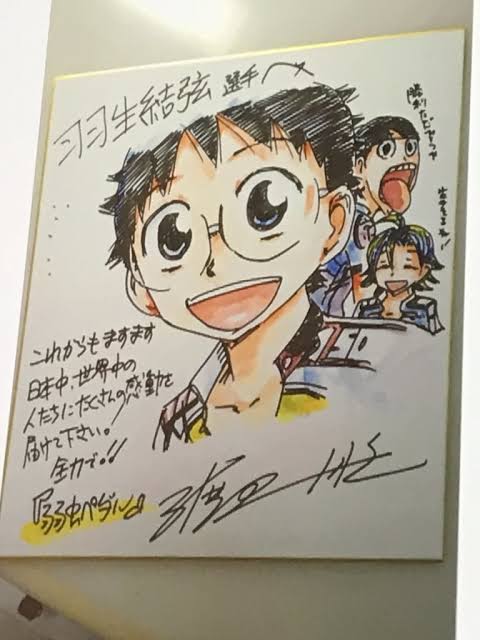 羽生結弦選手へ
これからもますます
日本中、世界中の
人たちにたくさんの感動を
届けて下さい。
全力で!!
『弱虫ペダル』
渡辺航